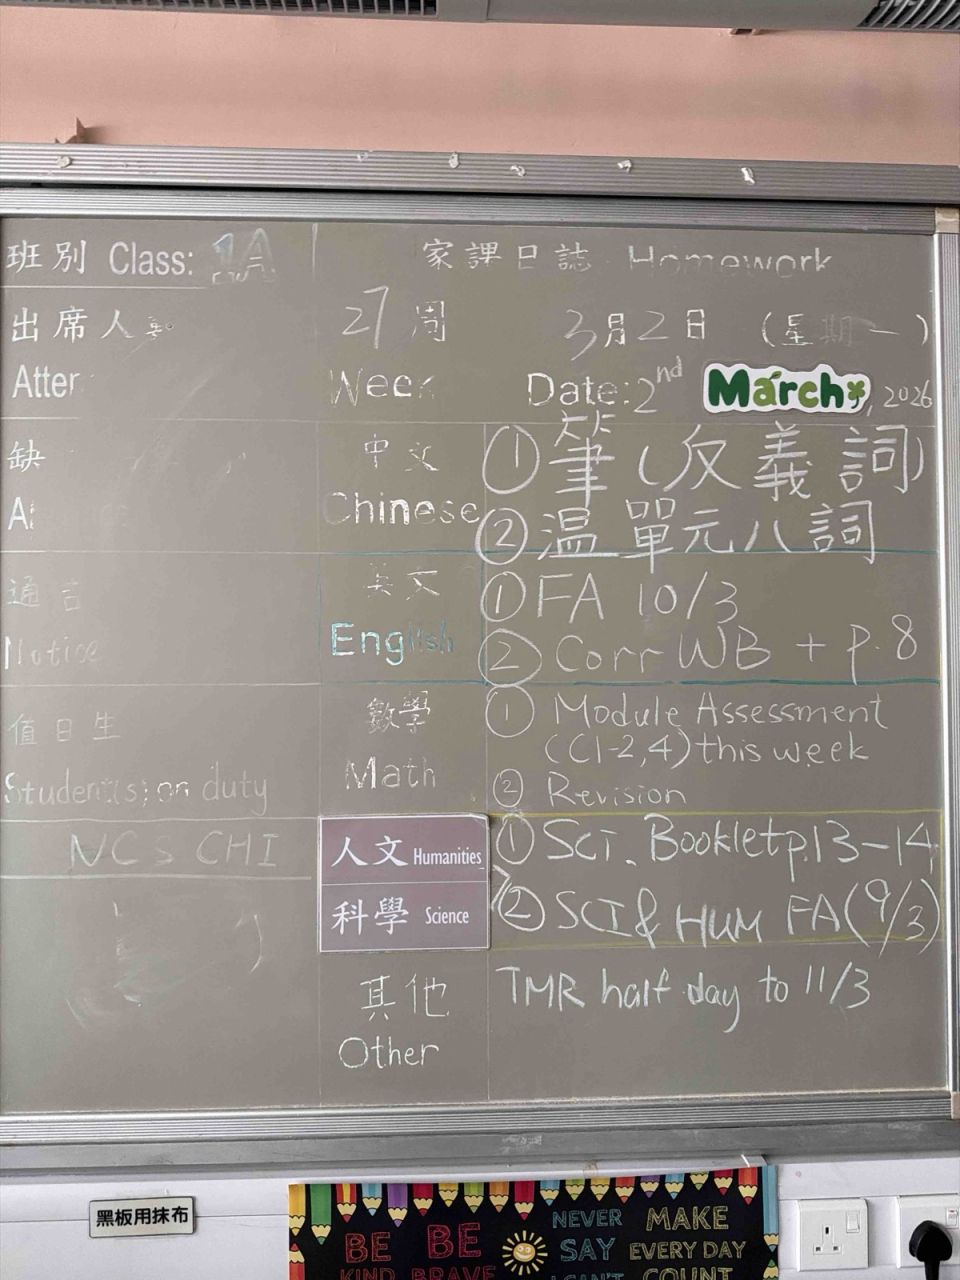 班別 Class: 1A
家課日誌 Homework
出席人
27周 3月2日 (星期一)
Atter
Week Date: 2nd March, 2026
缺
中文 Chinese
① 筆(反義詞)
② 温單元八詞
通告
Notice
英文 English
① FA 10/3
② Corr WB + p.8
值日生
Student(s) on duty
數學 Math
① Module Assessment
(C1-2,4) this week
② Revision
NCS CHI
人文 Humanities
科學 Science
① SCI. Booklet p.13-14
② SCI & HUM FA (9/3)
其他 Other
TMR half day to 11/3
黑板用抹布
BE KIND
BE BRAVE
NEVER SAY I CAN'T
MAKE EVERY DAY COUNT